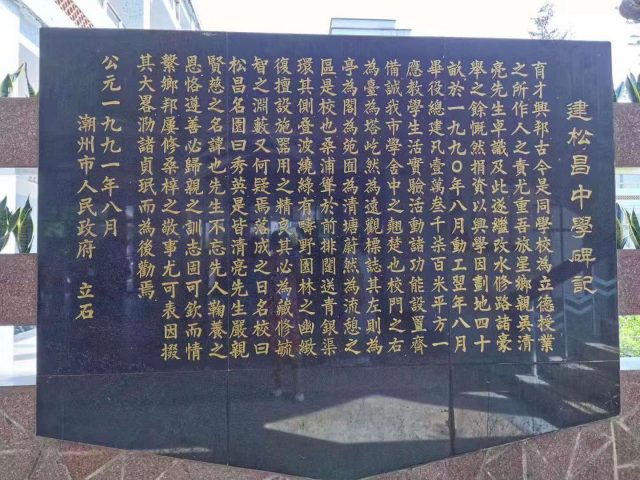 建松昌中學碑記
育才興邦古今是同學校為立德授業
之所作人之責尤重吾旅星鄉親吳清
亮先生早識及此遂繼改水修路諸豪
舉之餘慨然捐資以興學因劃地四十
畝於一九九〇年八月動工翌年八月
畢役總建凡壹萬叁千柒百米平方一
應教學生活實驗活動諸功能設置齊
備誠我市學舍中之翹楚也校門之右
為臺為塔屹然為遠觀標誌其左則為
亭為閣為苑囿為清塘蔚然為流憩之
區是校也桑浦聳於前排闥送青銀渠
環其側叠波繞綠有薈野園林之幽緻
復擅設施器用之精良其必為藏修毓
智之淵藪又何疑焉落成之日名校曰
松昌名園曰秀英是皆清亮先生嚴親
賢慈之名諱也先生不忘先人鞠養之
恩恪遵善必歸親之訓志固可欽而情
繫鄉邦屢修桑梓之敬事尤可表因掇
其大畧泐諸貞珉而為後勸焉
潮州市人民政府 立石
公元一九九一年八月